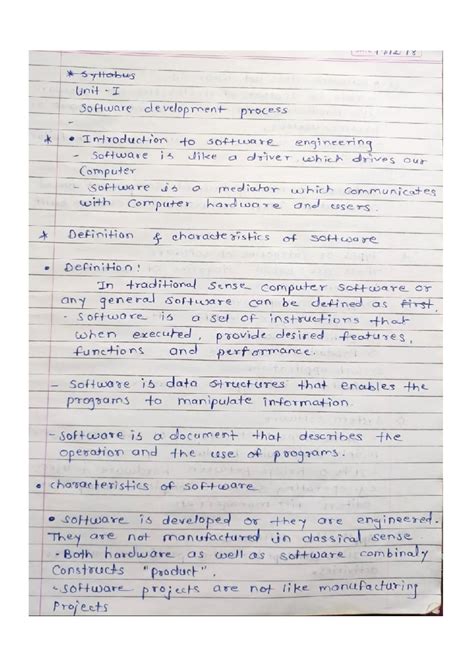 * Syllabus
Unit - I
Software development process
-
* • Introduction to software engineering
- Software is like a driver which drives our
Computer
- Software is a mediator which communicates
with Computer hardware and users.
* Definition & characteristics of software
• Definition:
In traditional sense computer software or
any general software can be defined as first,
- Software is a set of instructions that
when executed, provide desired features,
functions and performance.
- Software is data structures that enables the
programs to manipulate information.
- Software is a document that describes the
operation and the use of programs.
• characteristics of software
• Software is developed or they are engineered.
They are not manufactured in classical sense.
- Both hardware as well as software combinaly
Constructs "product".
- Software projects are not like manufacturing
Projects